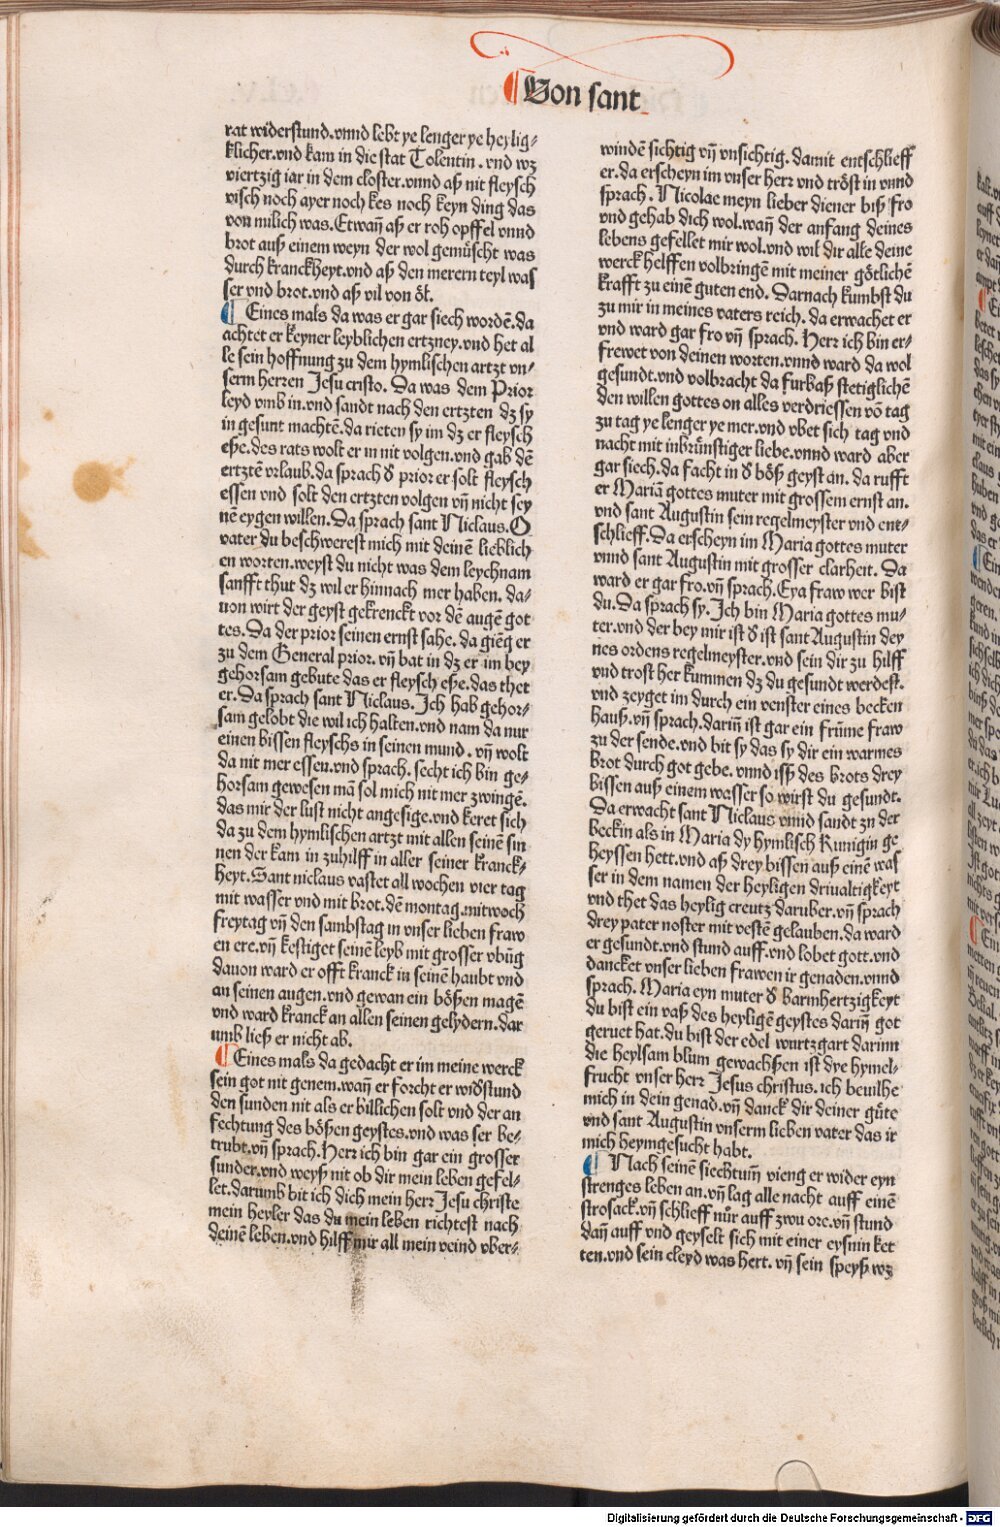 Von sant
rat widerstund.vnnd lebt ye lenger ye heylig⸗
klicher.vnd kam in die stat Tolentin.vnd wz
viertzig iar in dem closter.vnnd aß nit fleysch
visch noch ayer noch kes noch keyn ding das
von milich was.Etwañ aß er roh opffel vnnd
brot auß einem weyn der wol gemüscht was
durch kranckheyt.vnd aß den merern teyl was
ser vnd brot.vnd aß vil von öl.
¶ Eines mals da was er gar siech wordē.da
achtet er keyner leyblichen ertzney.vnd het al
le sein hoffnung zu dem hymlischen artzt vn⸗
serm herren Jesu cristo. Da was dem Prior
leyd vmb in.vnd sandt nach den ertzten dz sy
in gesunt machtē.da rieten sy im dz er fleysch
eße.des rats wolt er in nit volgen.vnd gab dē
ertztē vrlaub.da sprach d̕ prior er solt fleysch
essen vnd solt den ertzten volgen vñ nicht sey
nē eygen willen.Da sprach sant Niclaus.O
vater du beschwerest mich mit deinē lieblich
en worten.weyst du nicht was dem leychnam
sanfft thut dz wil er hinnach mer haben. da⸗
uon wirt der geyst gekrenckt vor dē augē got
tes.Da der prior seinen ernst sahe.da giēg er
zu dem General prior.vñ bat in dz er im bey
gehorsam gebute das er fleysch eße.das thet
er.Da sprach sant Niclaus.Ich hab gehor⸗
sam gelobt die wil ich halten.vnd nam da nur
einen bissen fleyschs in seinen mund.vñ wolt
da nit mer essen.vnd sprach.secht ich bin ge⸗
horsam gewesen mā sol mich nit mer zwingē.
das mir der lust nicht angesige.vnd keret sich
da zu dem hymlischen artzt mit allen seinē sin
nen der kam in zuhilff in aller seiner kranck⸗
heyt.Sant niclaus vastet all wochen vier tag
mit wasser vnd mit brot.dē montag.mitwoch
freytag vñ den sambstag in vnser lieben fraw
en ere.vñ kestiget seinē leyb mit grosser vbūg
dauon ward er offt kranck in seinē haubt vnd
an seinen augen.vnd gewan ein bößen magē
vnd ward kranck an allen seinen gelydern.dar
umb ließ er nicht ab.
¶ Eines mals da gedacht er im meine werck
sein got nit genem.wañ er forcht er wid̕stund
den sunden nit als er billichen solt vnd der an
fechtung des bößen geystes.vnd was ser be⸗
trubt.vñ sprach.Herr ich bin gar ein grosser
sunder.vnd weyß nit ob dir mein leben gefel⸗
let.darumb bit ich dich mein herr Jesu christe
mein heyler das du mein leben richtest nach
deinē leben.vnd hilff mir all mein veind vber⸗
windē sichtig vñ vnsichtig.damit entschlieff
er.da erscheyn im vnser herr vnd tröst in vnnd
sprach. Nicolae meyn lieber diener biß fro
vnd gehab dich wol.wañ der anfang deines
lebens gefellet mir wol.vnd wil dir alle deine
werck helffen volbringē mit meiner götlichē
krafft zu einē guten end. Darnach kumbst du
zu mir in meines vaters reich.da erwachet er
vnd ward gar fro vñ sprach. Herr ich bin er⸗
frewet von deinen worten.vnnd ward da wol
gesundt.vnd volbracht da furbaß stetiglichē
den willen gottes on alles verdriessen vō tag
zu tag ye lenger ye mer.vnd vbet sich tag vnd
nacht mit inbrünstiger liebe.vnnd ward aber
gar siech.da facht in d̕ böß geyst an. da rufft
er Mariā gottes muter mit grossem ernst an.
vnd sant Augustin sein regelmeyster vnd ent⸗
schlieff.Da erscheyn im Maria gottes muter
vnnd sant Augustin mit grosser clarheit. Da
ward er gar fro.vñ sprach.Eya fraw wer bist
du.Da sprach sy.Ich bin Maria gottes mu⸗
ter.vnd der bey mir ist d̕ ist sant Augustin dey
nes ordens regelmeyster.vnd sein dir zu hilff
vnd trost her kummen dz du gesundt werdest.
vnd zeyget im durch ein venster eines becken
hauß.vñ sprach.dariñ ist gar ein frūme fraw
zu der sende.vnd bit sy das sy dir ein warmes
brot durch got gebe.vnnd issz des brots drey
bissen auß einem wasser so wirst du gesundt.
Da erwacht sant Niclaus vnnd sandt zu der
beckin als in Maria dy hymlisch Kunigin ge
heyssen hett.vnd aß drey bissen auß einē was
ser in dem namen der heyligen driualtigkeyt
vnd thet das heylig creutz daruber.vñ sprach
drey pater noster mit vestē gelauben.da ward
er gesundt.vnd stund auff.vnd lobet gott.vnd
dancket vnser lieben frawen ir genaden.vnnd
sprach. Maria eyn muter d̕ barmhertzigkeyt
du bist ein vaß des heyligē geystes dariñ got
geruet hat.du bist der edel wurtzgart darinn
die heylsam blům gewachßen ist dye hymel⸗
frucht vnser herr Jesus christus.ich beuilhe
mich in dein genad.vñ danck dir deiner gůte
vnd sant Augustin vnserm lieben vater das ir
mich heymgesucht habt.
¶ Nach seinē siechtuñ vieng er wider eyn
strenges leben an.vñ lag alle nacht auff einē
strosack.vñ schlieff nůr auff zwu ore.vñ stund
dañ auff vnd geyselt sich mit einer eysnin ket
ten.vnd sein cleyd was hert. vñ sein speyß wz
Digitalisierung gefördert durch die Deutsche Forschungsgemeinschaft - DFG